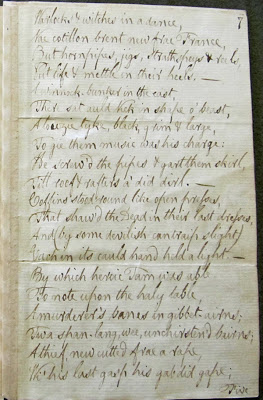 7
Warlocks & witches in a dance,
Nae cotillon brent new frae France,
But hornpipes, jigs, strathspeys & reels,
Put life & mettle in their heels. —
A winnock-bunker in the east,
There sat auld Nick in shape o' beast,
A towzie tyke, black, grim & large,
To gie them music was his charge:
He screw'd the pipes & gart them skirl,
Till roof & rafters a' did dirl. —
Coffins stood round like open presses,
That shaw'd the Dead in their last dresses,
And (by some devilish cantraip slight)
Each in its cauld hand held a light. —
By which heroic Tam was able
To note upon the haly table,
A murderer's banes in gibbet-airns;
Twa span-lang, wee, unchirsten'd bairns;
A thief, new cutted frae a rape,
Wi' his last gasp his gab did gape;
Five